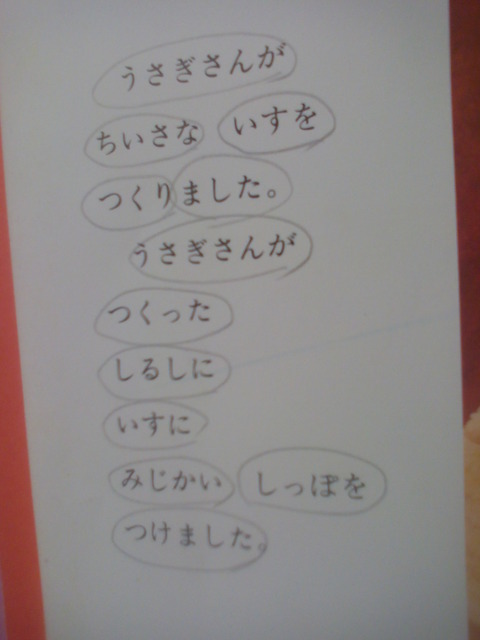 うさぎさんが
ちいさな いすを
つくりました。
うさぎさんが
つくった
しるしに
いすに
みじかい しっぽを
つけました。